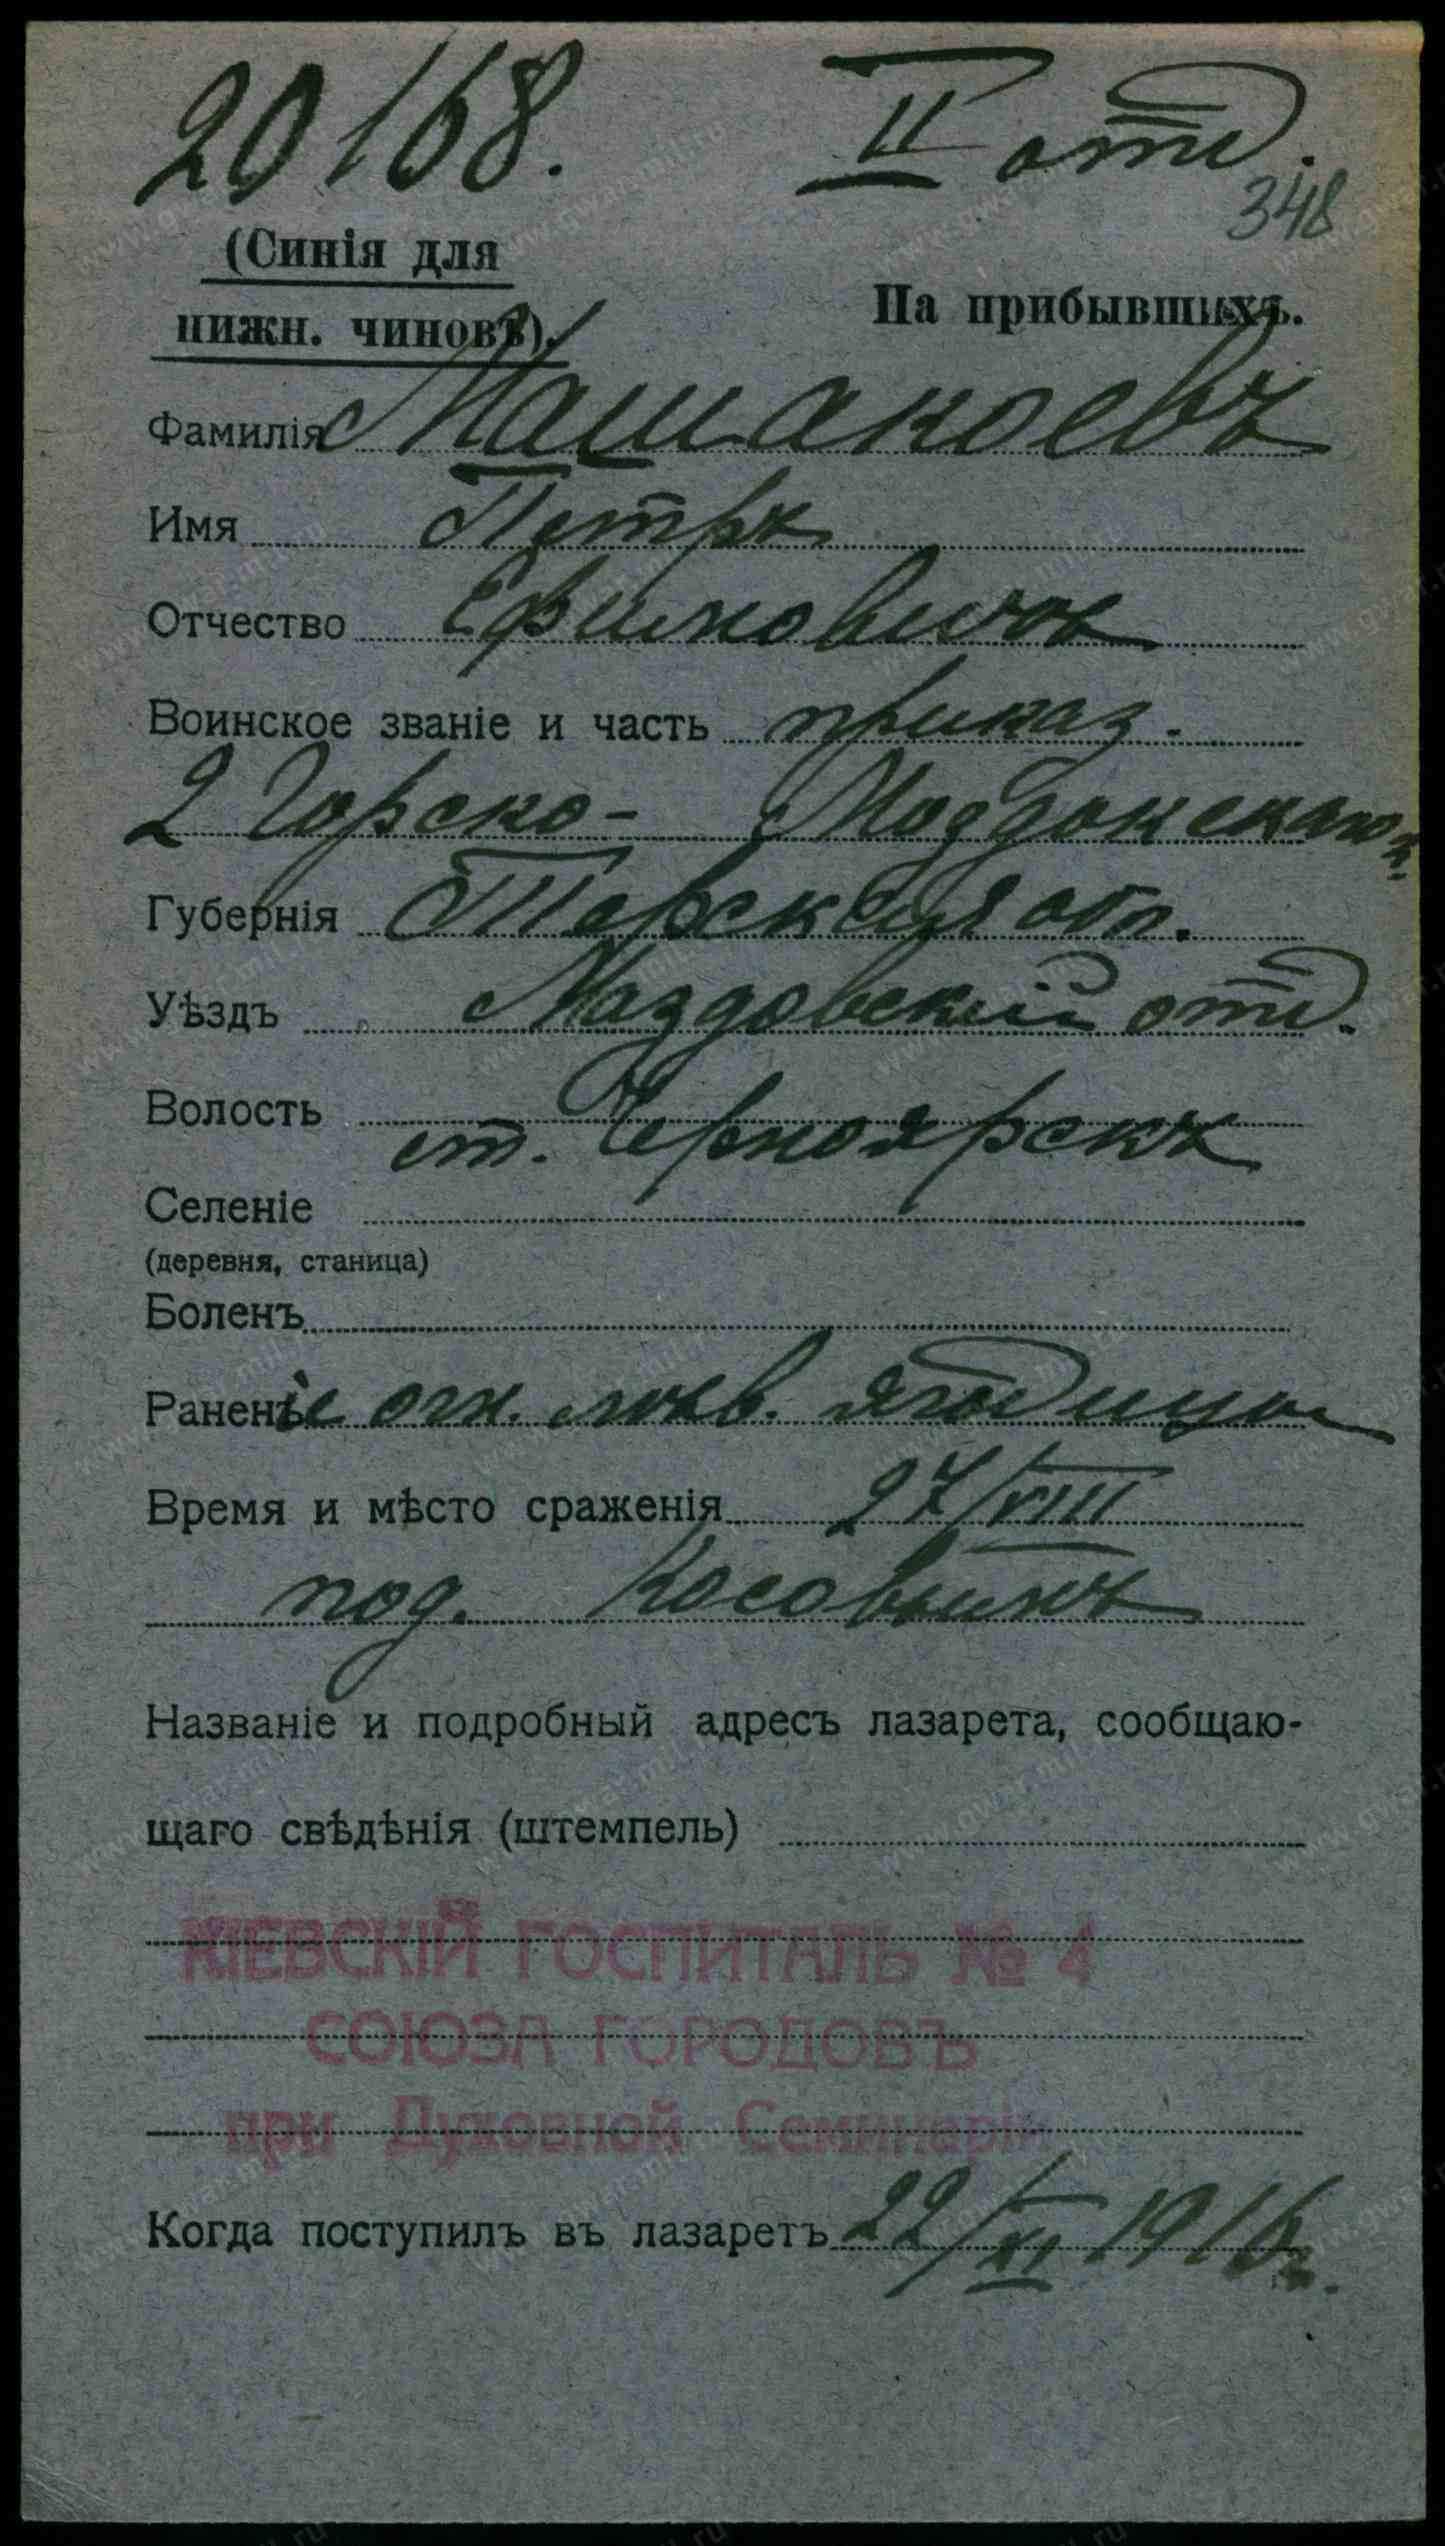 20168. II отд.
348
(Синія для
нижн. чиновъ).
На прибывшихъ.
Фамилія Машакоевъ
Имя Петръ
Отчество Ефимовичъ
Воинское званіе и часть приказ.
2 Горско- Моздокскаго п.
Губернія Терская обл.
Уѣздъ Маздовскій отд.
Волость
ст. Черноярскъ
Селеніе
(деревня, станица)
Боленъ
Раненіе огн. лѣв. ягодицы
Время и мѣсто сраженія 27/VIII
под.
Названіе и подробный адресъ лазарета, сообщаю-
щаго свѣдѣнія (штемпель)
КІЕВСКІЙ ГОСПИТАЛЬ № 4
СОЮЗА ГОРОДОВЪ
при Духовной Семинаріи
Когда поступилъ въ лазаретъ 22/XI 1916г.